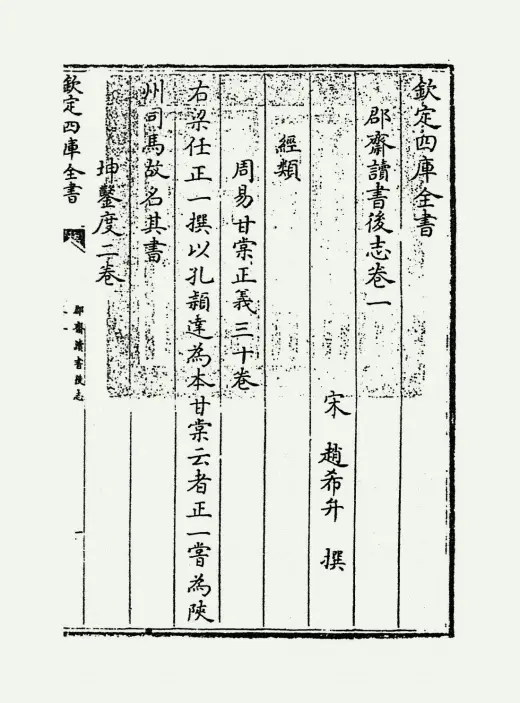 欽定四庫全書
郡齋讀書後志卷一
宋 趙希弁 撰
經類
周易甘棠正義三十卷
右梁任正一撰以孔穎達為本甘棠云者正一嘗為陝
州司馬故名其書
坤鑿度二卷
欽定四庫全書
郡齋讀書後志
一